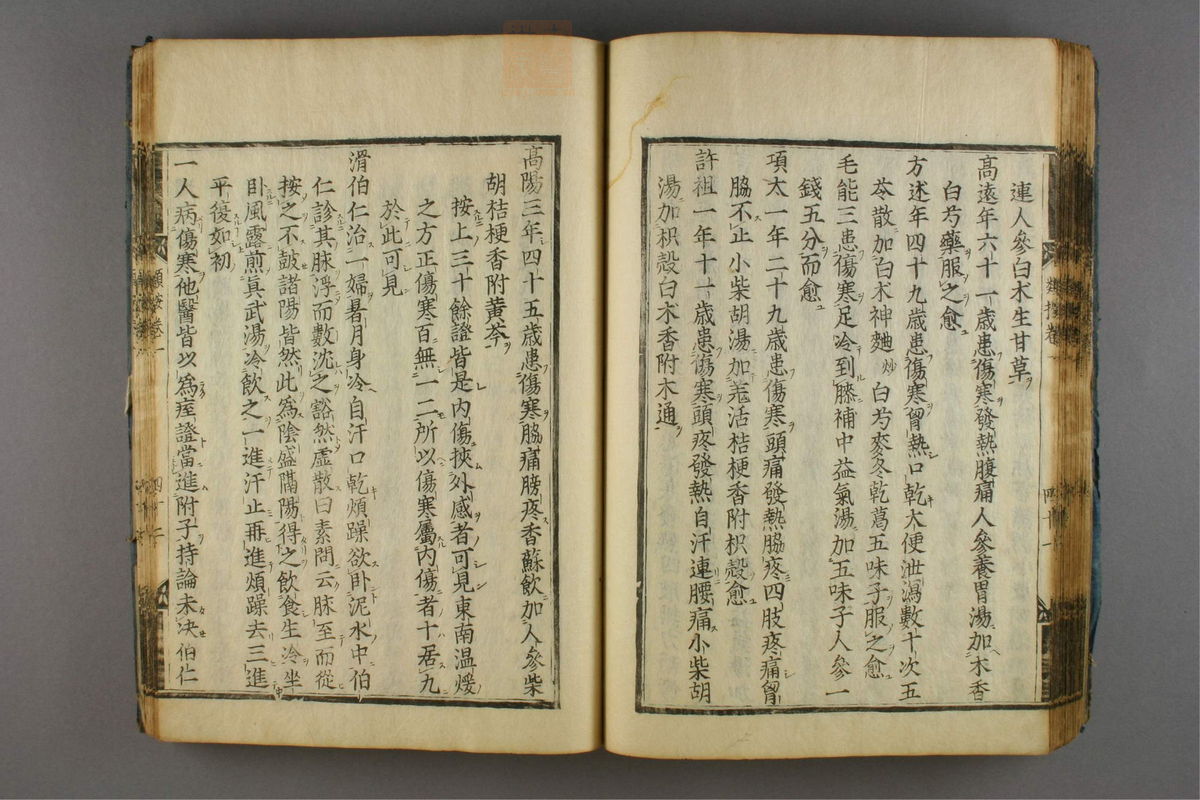 連人參白朮生甘草
高遠年六十一歳患傷寒發熱腹痛人參養胃湯加木香
白芍藥服之愈
方述年四十九歳患傷寒曾熱口乾大便泄瀉數十次五
苓散加白朮神麯炒白芍麥冬乾葛五味子服之愈
毛能三患傷寒足冷到膝補中益氣湯加五味子人參一
錢五分而愈
項太一年二十九歳患傷寒頭痛發熱脇疼四肢疼痛曾
脇不止小柴胡湯加羗活桔梗香附枳殻愈
許祖一年十一歳患傷寒頭疼發熱自汗連腰痛小柴胡
湯加枳殻白朮香附木通
類按卷一
高陽三年四十五歳患傷寒脇痛膀疼香蘇飲加人參柴
胡桔梗香附黄芩
按上三十餘證皆是内傷挾外感者可見東南温煖
之方正傷寒百無一二所以傷寒屬内傷者十居九
於此可見
滑伯仁治一婦暑月身冷自汗口乾煩躁欲卧泥水中伯
仁診其脉浮而數沈之豁然虚散曰素問云脉至而從
按之不皷諸陽皆然此爲陰盛隔陽得之飲食生冷坐
卧風露煎眞武湯冷飲之一進汗止再進煩躁去三進
平復如初
一人病傷寒他醫皆以爲痓證當進附子持論未决伯仁